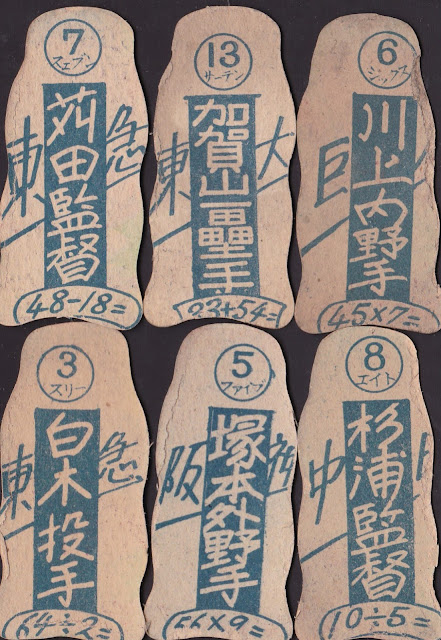 7
スェブン
東急
苅田監督
48-18=
13
サーテン
東大
加賀山一壘手
+54=
6
シックス
巨
川上内野手
45×7=
3
スリー
東急
白木投手
64÷2=
5
ファイブ
阪神
塚本外野手
56×9=
8
エイト
中
杉浦監督
10÷5=